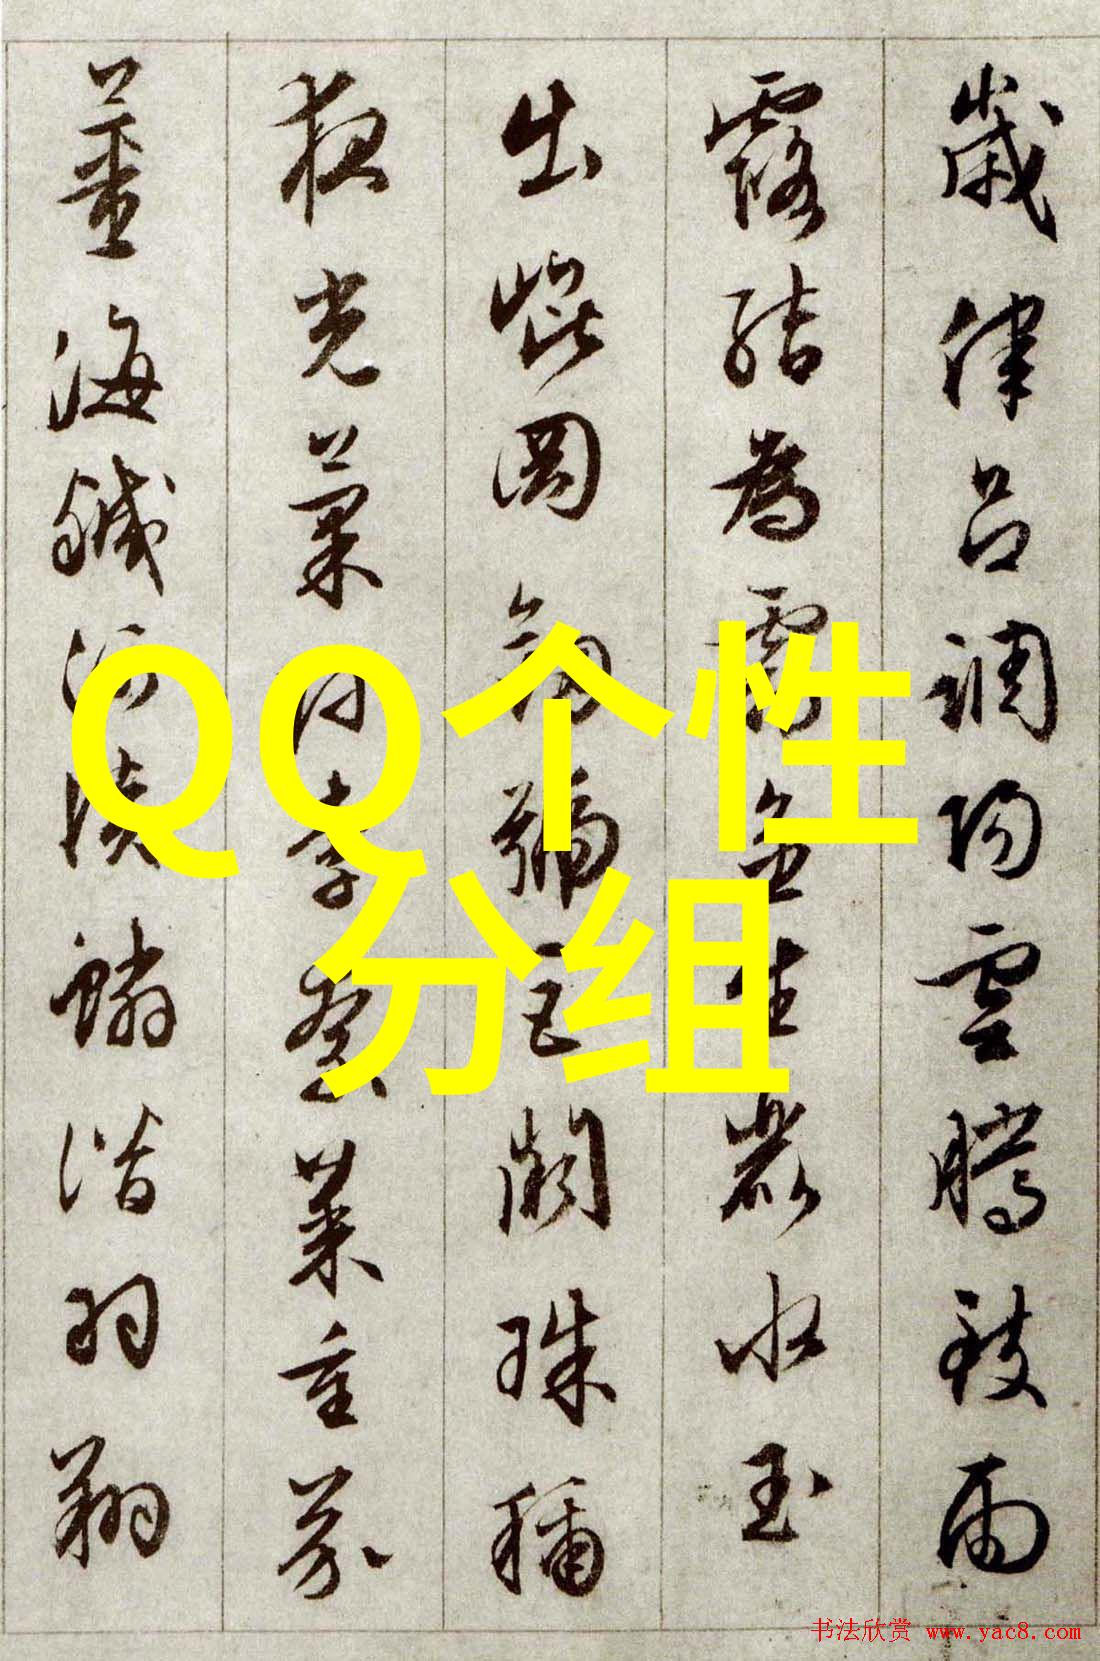 歲律呂調陽雲騰致雨
露結為霜金生麗水玉
出崐岡劍號巨闕珠稱
夜光菓珍李柰菜重芥
薑海鹹河淡鱗潛羽翔
QQ个性
分组
书法欣赏 www.yac8.com